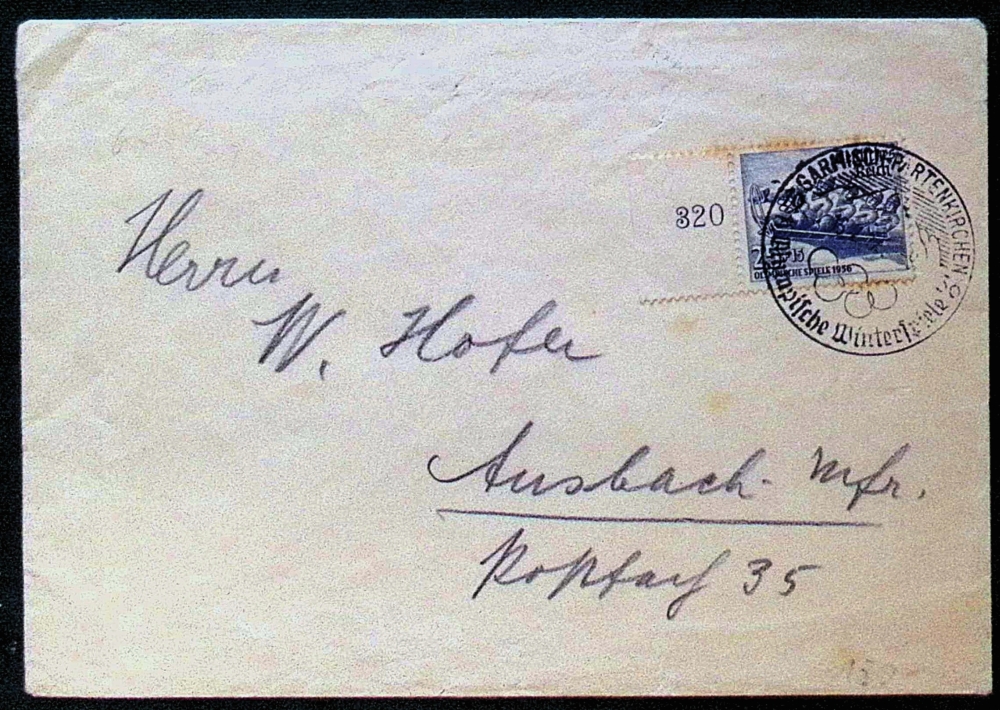 320
GARMISCH-PARTENKIRCHEN
Olympische Winterspiele
OLYMPISCHE SPIELE 1936
Herrn
W. Hofer
Ansbach Mfr.
Postfach 35